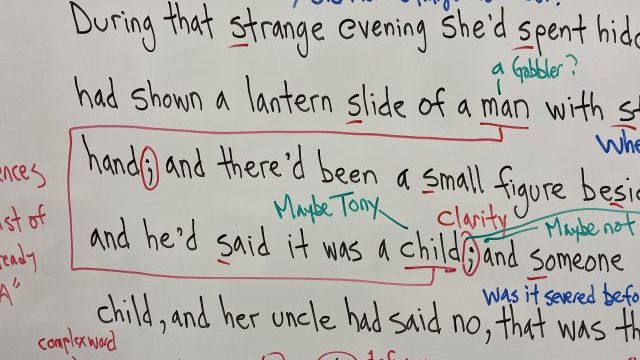 During that strange evening she'd spent
a Gabbler?
had shown a lantern slide of a man with
hand; and there'd been a small figure
Maybe Tony
Clarity
Maybe not
and he'd said it was a child; and someone
ready
A"
was it severed
child, and her uncle had said no, that was
complex word